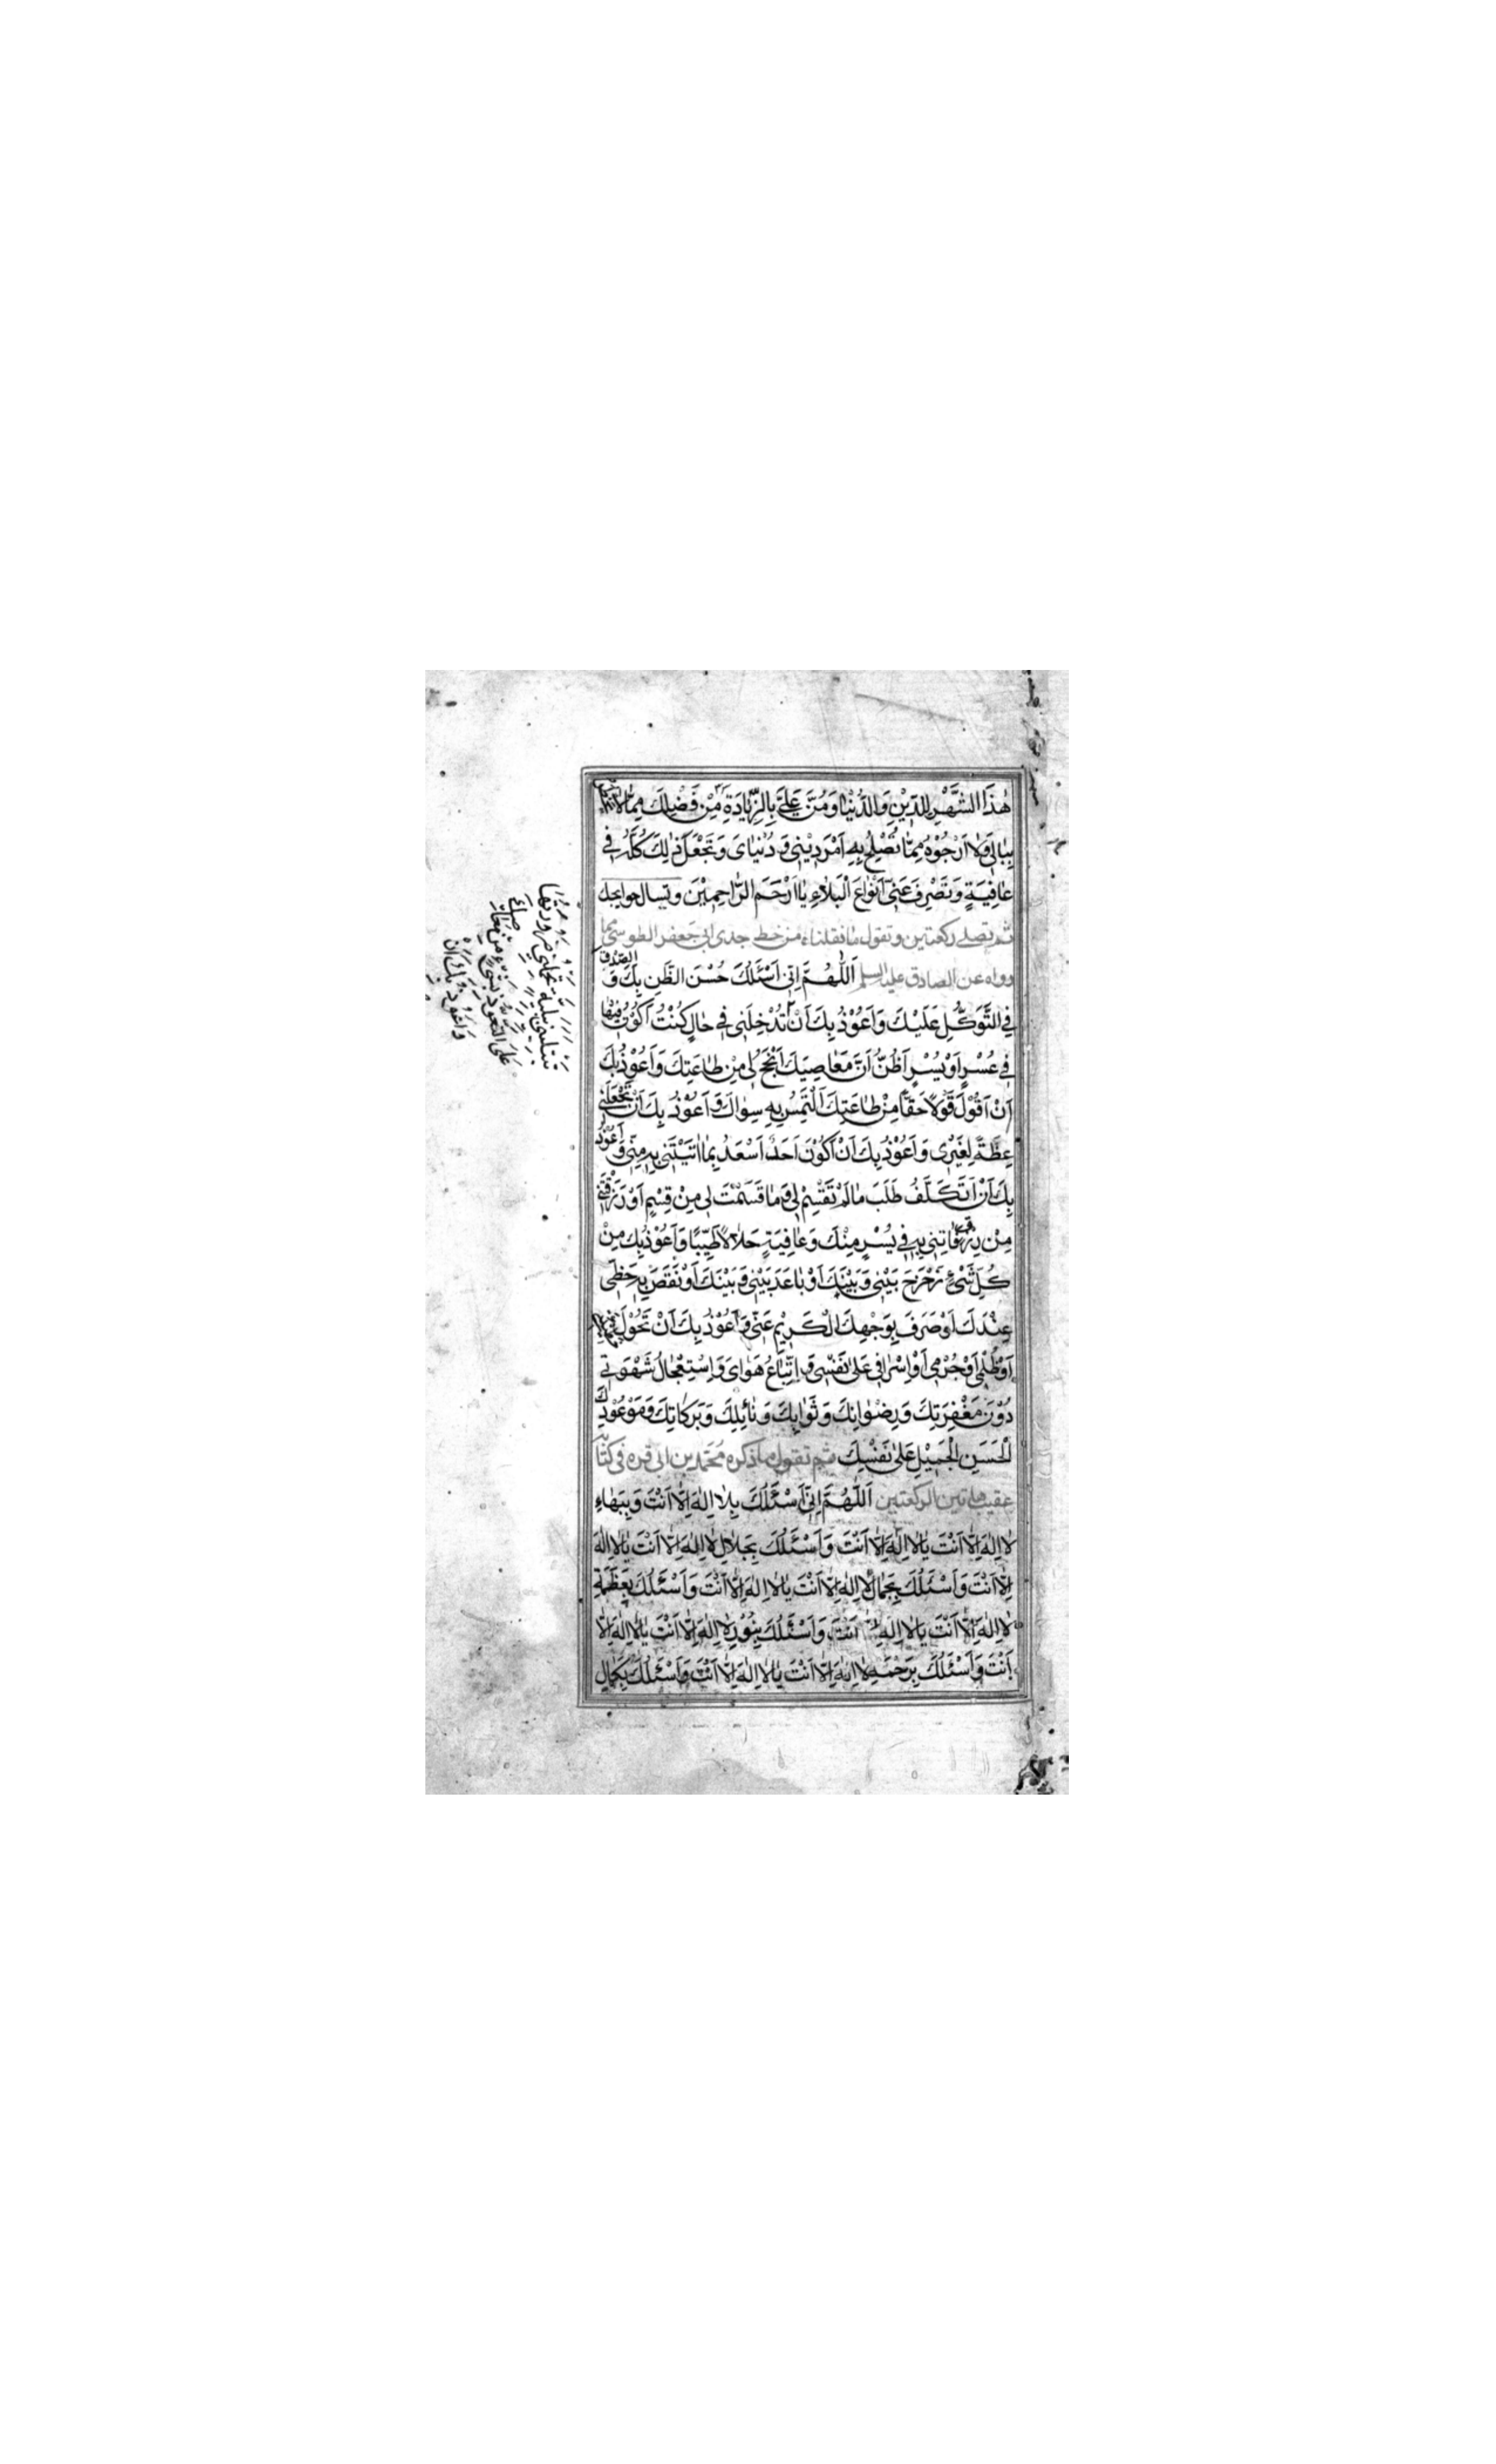 هٰذَا الشَّهْرِ لِلدِّيْنِ وَالدُّنْيَا وَمُنَّ عَلَيَّ بِالزِّيَادَةِ مِنْ فَضْلِكَ مِمَّا لَا
بِبَالِي وَلَا اَرْجُوْهُ مِمَّا تُصْلِحُ بِهِ اَمْرَ دِيْنِي وَدُنْيَايَ وَتَجْعَلَ ذٰلِكَ كُلَّهُ فِي
عَافِيَةٍ وَتَصْرِفَ عَنِّي اَنْوَاعَ الْبَلَاءِ يَا اَرْحَمَ الرَّاحِمِيْنَ وتسال حوايجك
ثم تصلي ركعتين وتقول ما نقلناه من خط جدى ابى جعفر الطوسى مما
رواه عن الصادق عليه السلم اَللّٰهُمَّ اِنِّي اَسْئَلُكَ حُسْنَ الظَّنِ بِكَ وَ الصِّدْقَ
فِي التَّوَكُّلِ عَلَيْكَ وَاَعُوْذُ بِكَ اَنْ تُدْخِلَنِي فِي حَالٍ كُنْتُ اَكُوْنُ فِيْهَا
فِي عُسْرٍ اَوْ يُسْرٍ اَظُنُّ اَنَّ مَعَاصِيَكَ اَنْجَحُ لِي مِنْ طَاعَتِكَ وَاَعُوْذُ بِكَ
اَنْ اَقُوْلَ قَوْلًا حَقًّا مِنْ طَاعَتِكَ اَلْتَمِسُ بِهِ سِوَاكَ وَاَعُوْذُ بِكَ اَنْ تَجْعَلَنِي
عِظَةً لِغَيْرِى وَاَعُوْذُ بِكَ اَنْ اَكُوْنَ اَحَدٌ اَسْعَدُ بِمَا اٰتَيْتَنِي بِهِ مِنِّي وَاَعُوْذُ
بِكَ اَنْ اَتَكَلَّفَ طَلَبَ مَا لَمْ تَقْسِمْ لِي وَمَا قَسَمْتَ لِي مِنْ قِسْمٍ اَوْ رَزَقْتَنِي
مِنْ رِزْقٍ فَاٰتِنِي بِهِ فِي يُسْرٍ مِنْكَ وَعَافِيَةٍ حَلَالًا طَيِّبًا وَاَعُوْذُ بِكَ مِنْ
كُلِّ شَيْءٍ زَحْزَحَ بَيْنِي وَبَيْنَكَ اَوْ بَاعَدَ بَيْنِي وَبَيْنَكَ اَوْ نَقَصَ بِهِ حَظِّي
عِنْدَكَ اَوْ صَرَفَ بِوَجْهِكَ الْكَرِيْمِ عَنِّي وَاَعُوْذُ بِكَ اَنْ تَحُوْلَ
اَوْ ظُلْمِي اَوْ جُرْمِي اَوْ اِسْرَافِي عَلٰى نَفْسِي وَاتِّبَاعُ هَوَايَ وَاسْتِعْجَالُ شَهْوَتِي
دُوْنَ مَغْفِرَتِكَ وَرِضْوَانِكَ وَثَوَابِكَ وَنَائِلِكَ وَبَرَكَاتِكَ وَمَوْعُوْدِكَ
الْحَسَنِ الْجَمِيْلِ عَلٰى نَفْسِكَ ثم تقول ما ذكره محمد بن ابى قره فى كتابه
عقيب هاتين الركعتين اَللّٰهُمَّ اِنِّي اَسْئَلُكَ بِلَا اِلٰهَ اِلَّا اَنْتَ وَبِبَهَاءِ
لَا اِلٰهَ اِلَّا اَنْتَ يَا لَا اِلٰهَ اِلَّا اَنْتَ وَاَسْئَلُكَ بِجَلَالِ لَا اِلٰهَ اِلَّا اَنْتَ يَا لَا اِلٰهَ
اِلَّا اَنْتَ وَاَسْئَلُكَ بِجَمَالِ لَا اِلٰهَ اِلَّا اَنْتَ يَا لَا اِلٰهَ اِلَّا اَنْتَ وَاَسْئَلُكَ بِعَظَمَةِ
لَا اِلٰهَ اِلَّا اَنْتَ يَا لَا اِلٰهَ اِلَّا اَنْتَ وَاَسْئَلُكَ بِنُوْرِ لَا اِلٰهَ اِلَّا اَنْتَ يَا لَا اِلٰهَ اِلَّا
اَنْتَ وَاَسْئَلُكَ بِرَحْمَةِ لَا اِلٰهَ اِلَّا اَنْتَ يَا لَا اِلٰهَ اِلَّا اَنْتَ وَاَسْئَلُكَ بِكَمَالِ
وَاَعُوْذُ بِكَ اَنْ